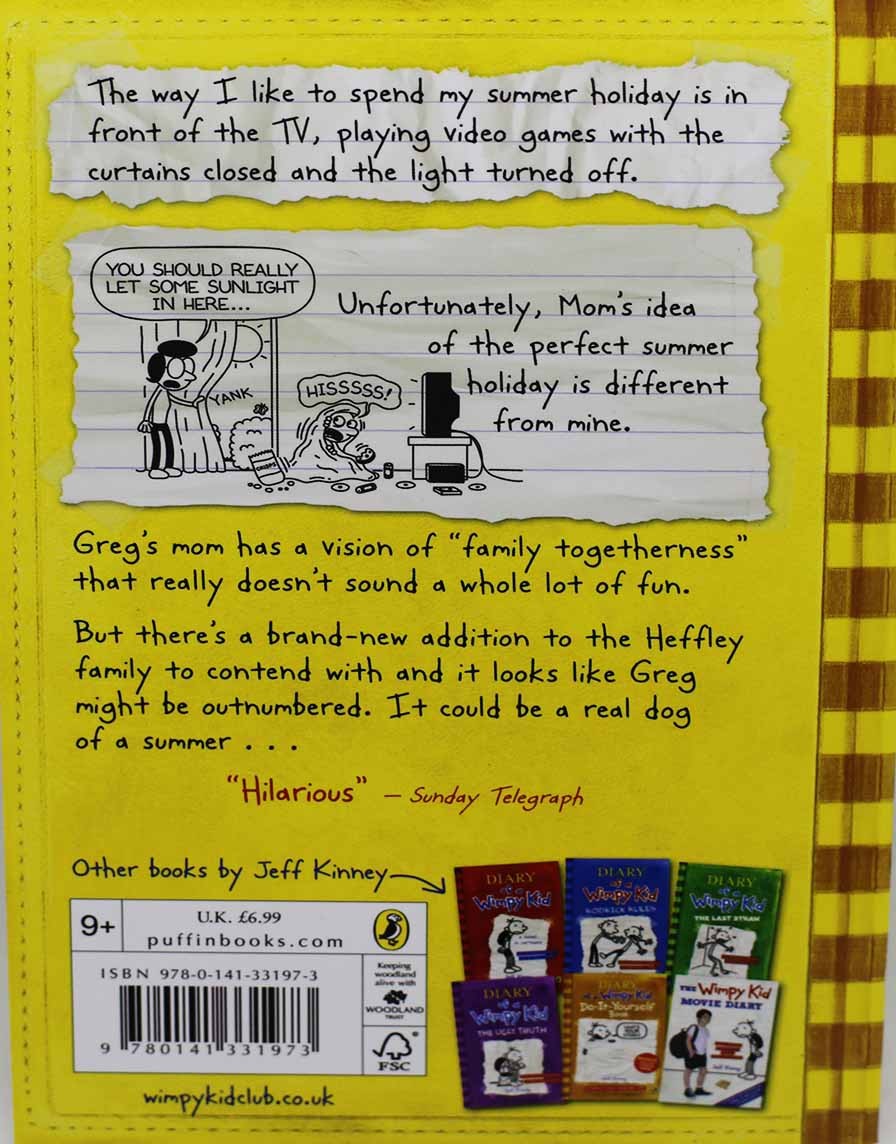 The way I like to spend my summer holiday is in
front of the TV, playing video games with the
curtains closed and the light turned off.
YOU SHOULD REALLY
LET SOME SUNLIGHT
IN HERE...
YANK
HISSSSS!
CRISPS
Unfortunately, Mom's idea
of the perfect summer
holiday is different
from mine.
Greg's mom has a vision of "family togetherness"
that really doesn't sound a whole lot of fun.
But there's a brand-new addition to the Heffley
family to contend with and it looks like Greg
might be outnumbered. It could be a real dog
of a summer . . .
"Hilarious" – Sunday Telegraph
Other books by Jeff Kinney
DIARY
of a
Wimpy Kid
DIARY
of a
Wimpy Kid
RODRICK RULES
DIARY
of a
Wimpy Kid
THE LAST STRAW
DIARY
of a
Wimpy Kid
THE UGLY TRUTH
DIARY
of a Wimpy Kid
Do-It-Yourself
Book
THE Wimpy Kid
MOVIE DIARY
9+
U.K. £6.99
puffinbooks.com
ISBN 978-0-141-33197-3
9 780141 331973
Keeping
woodland
alive with
WOODLAND
TRUST
FSC
wimpykidclub.co.uk